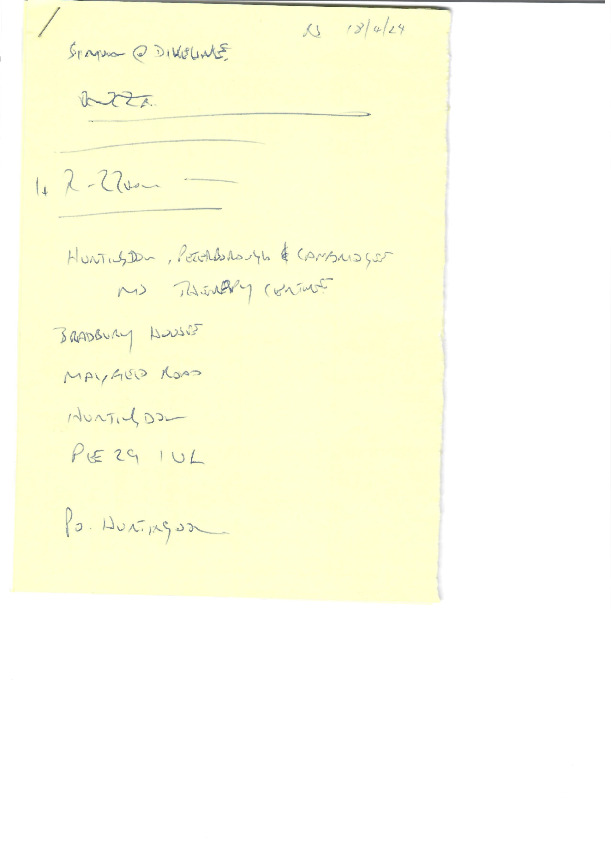 18/4/24
SIMON @ DIVELINE
HUNTINGDON, PETERBOROUGH & CAMBRIDGE
MS THERAPY CENTRE
BRADBURY HOUSE
MAYFIELD ROAD
HUNTINGDON
PE29 1UL
PO. HUNTINGDON